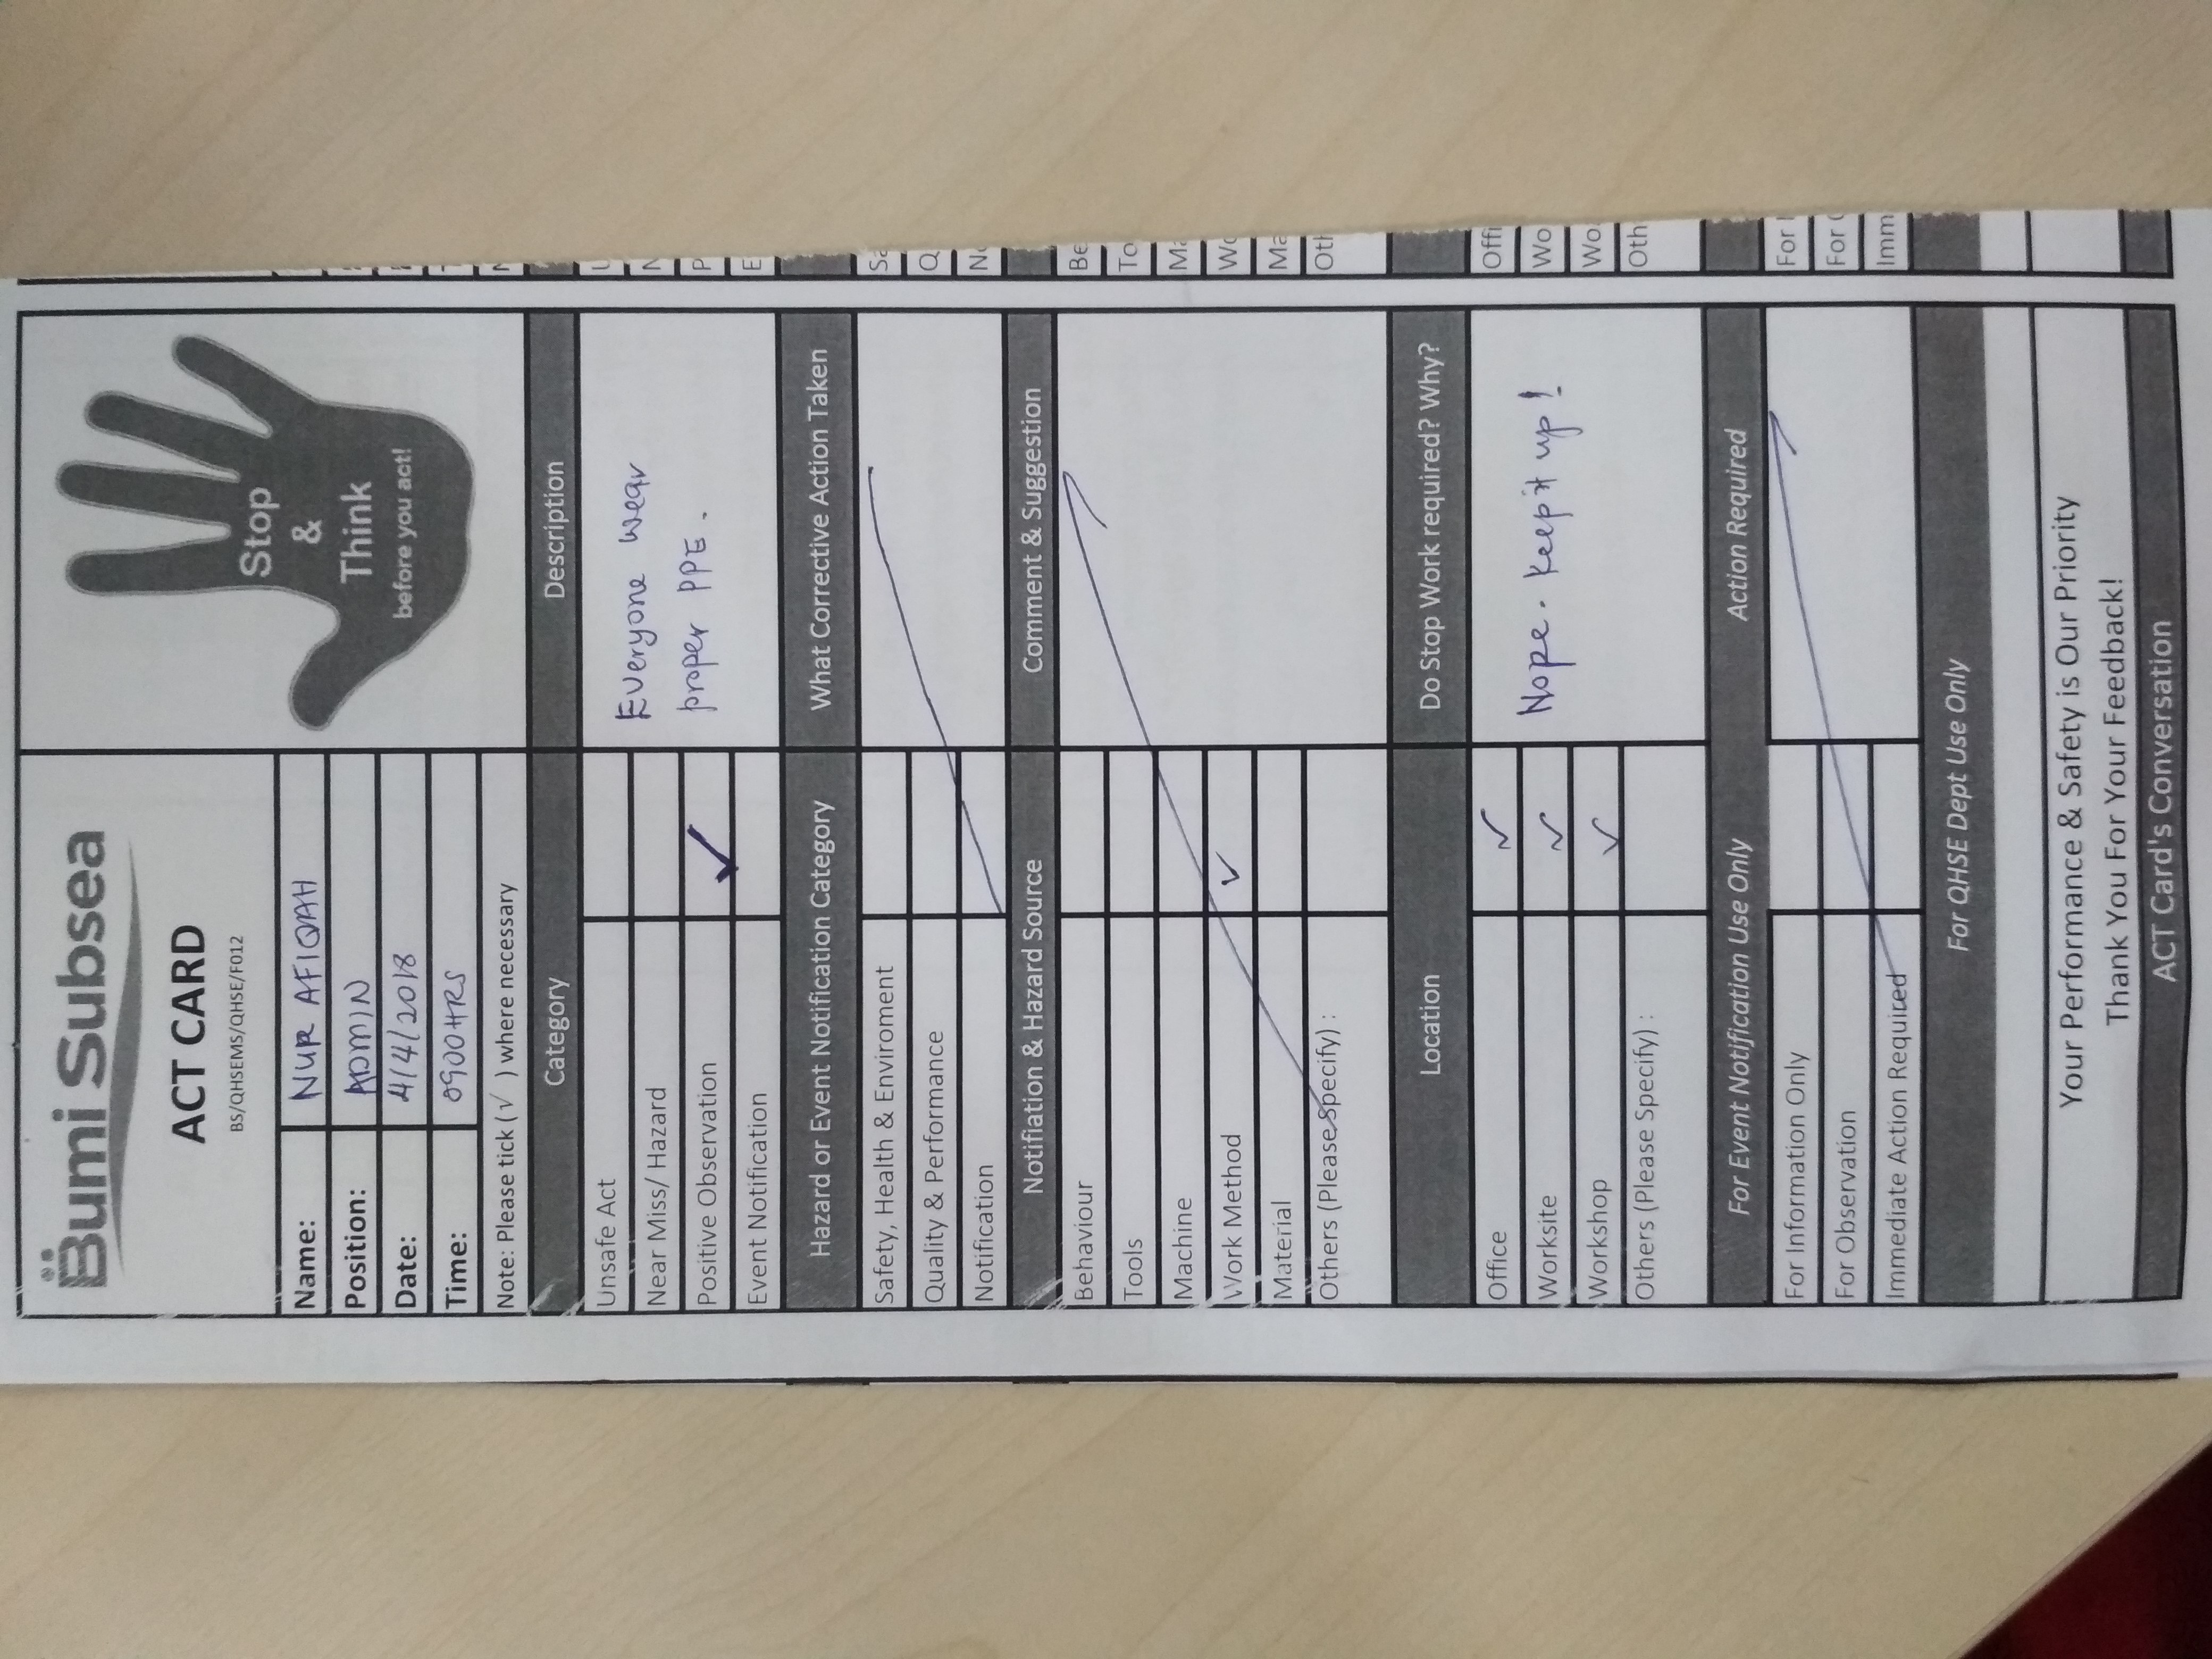 Bumi Subsea
ACT CARD
BS/QHSEMS/QHSE/F012
Stop
&
Think
before you act!
Name: NUR AFIQAH
Position: ADMIN
Date: 4/4/2018
Time: 0900HRS
Note: Please tick (√ ) where necessary
Category Description
Unsafe Act
Near Miss/ Hazard
Positive Observation ✓
Event Notification
Everyone wear
proper PPE.
Hazard or Event Notification Category What Corrective Action Taken
Safety, Health & Enviroment
Quality & Performance
Notification
Notifiation & Hazard Source Comment & Suggestion
Behaviour
Tools
Machine
Work Method ✓
Material
Others (Please Specify) :
Location Do Stop Work required? Why?
Office ✓
Worksite ✓
Workshop ✓
Others (Please Specify) :
Nope. Keep it up!
For Event Notification Use Only Action Required
For Information Only
For Observation
Immediate Action Required
For QHSE Dept Use Only
Your Performance & Safety is Our Priority
Thank You For Your Feedback!
ACT Card's Conversation
Sa
Q
No
Be
To
Ma
Wo
Ma
Oth
Offi
Wo
Wo
Oth
For I
For O
Imm